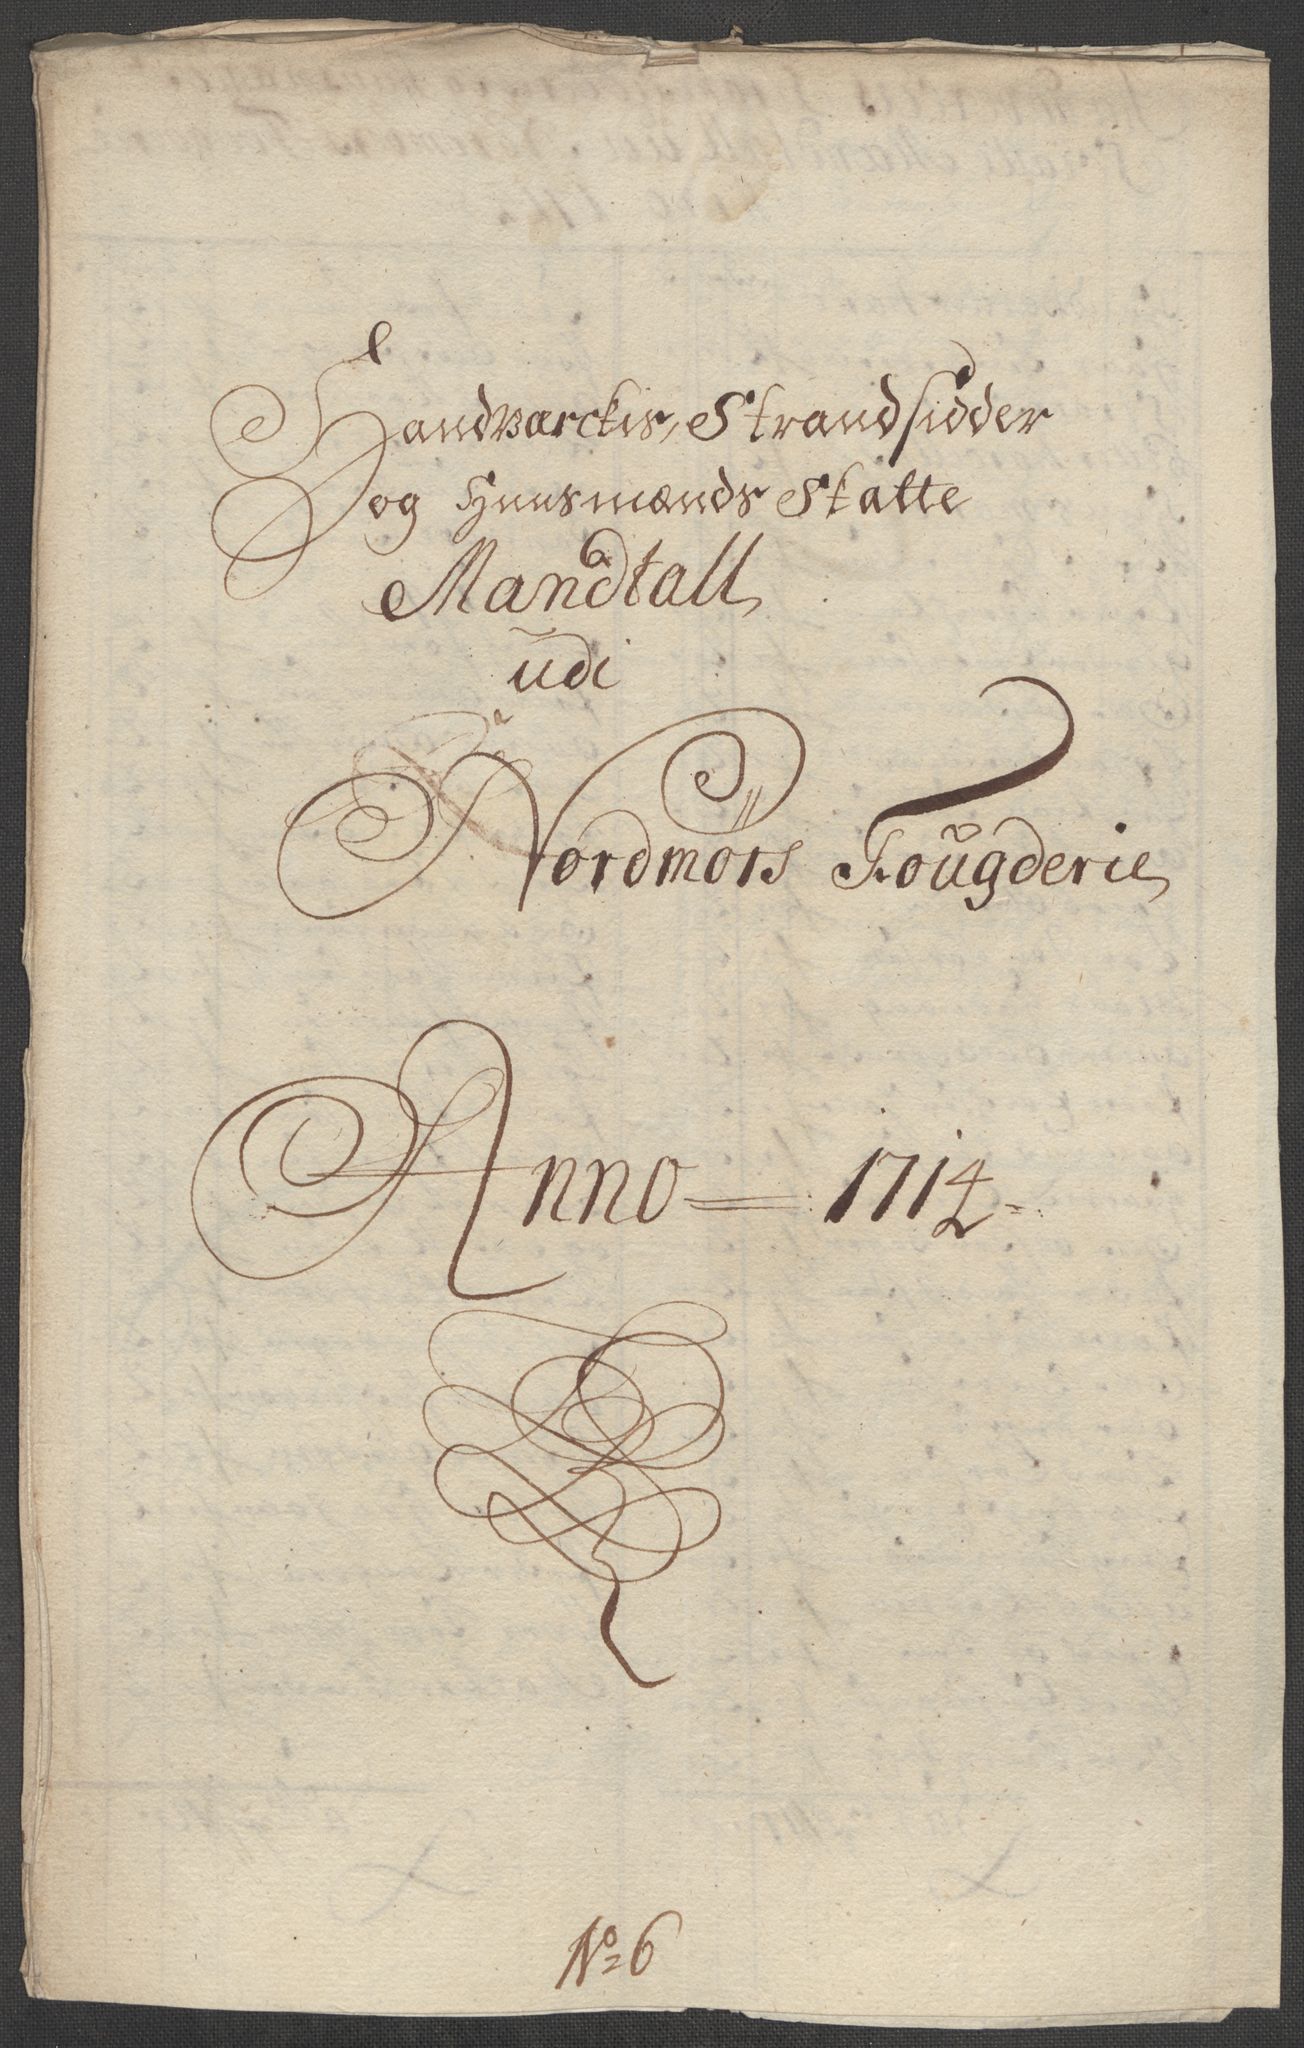 Handværckis, Strandsidder
og Huusmænds Skatte
Mandtall,
udi
Nordmørs Fougderie,
Anno = 1714
No 6